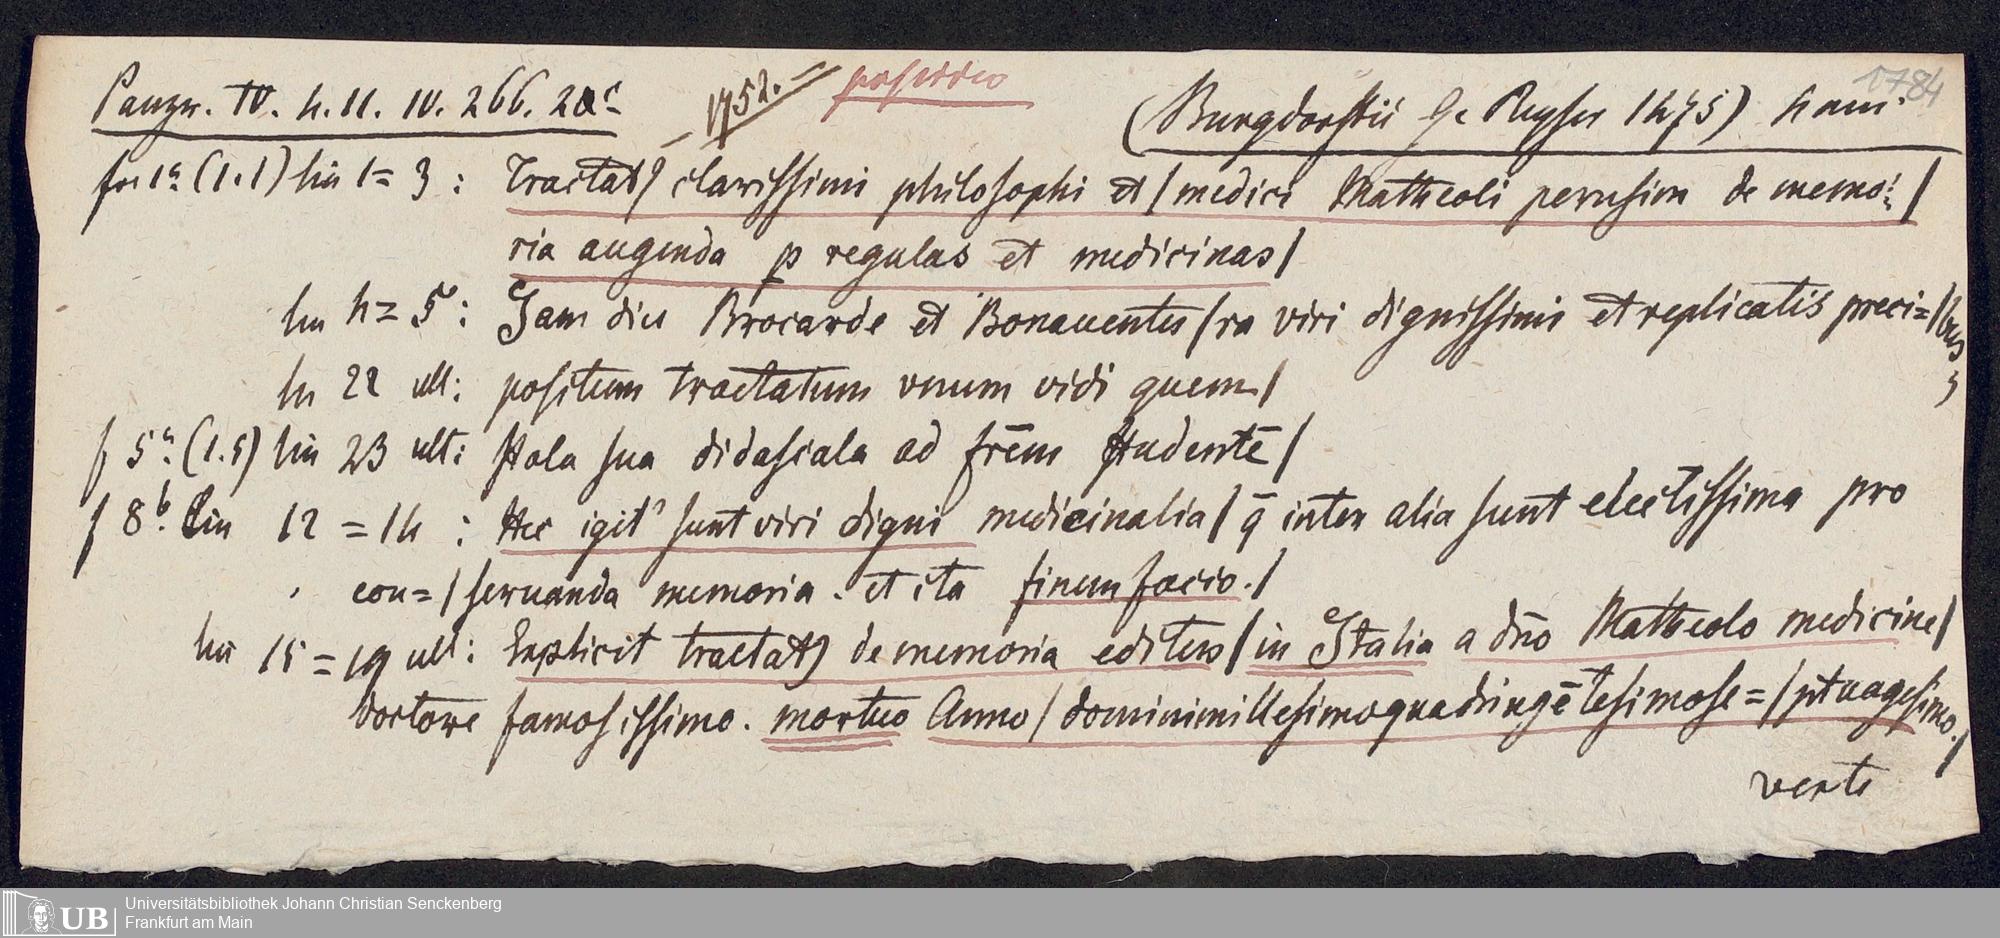 Panzer. IV. 4. 11. IV. 266. 20c
1752.
posterius
1784
(Burgdorffii Ge Reyser 1475) 4 ani.
fol 1a (1.1) lin 1=3: Tractat9 clarissimi philosophi et / medici Matheoli perusim de memo: /
ria augenda p regulas et medicinas /
lin 4=5: Iam diu Brocarde et Bonauentu / ra viri dignissimi et replicatis preci= / bus
lin 22 ult: positum tractatum vnum vidi quem /
f 5a. (1.5) lin 23 ult: stola sua didascala ad frēm studentē /
f 8b. Lin 12=14: Hec igit' sunt viri digni medicinalia / q̄ inter alia sunt electissima pro
con= / seruanda memoria . et ita finem facio. /
lin 15=19 ult: Explicit tractat9 de memoria editus / in Italia a dn̄o Matheolo medicine /
doctore famosissimo. mortuo Anno / domini millesimoquadringētesimose= / ptuagesimo. /
verte
UB
Universitätsbibliothek Johann Christian Senckenberg
Frankfurt am Main